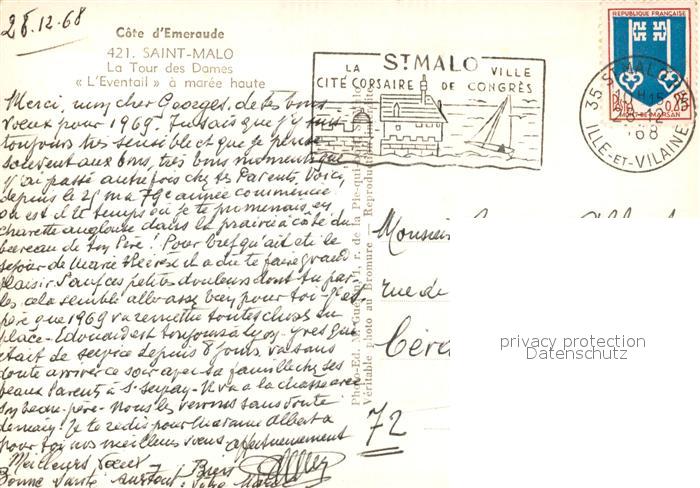 28.12.68
Côte d'Emeraude
421. SAINT-MALO
La Tour des Dames
« L'Eventail » à marée haute
ST MALO
LA VILLE
CITÉ CORSAIRE DE CONGRÈS
REPUBLIQUE FRANÇAISE
0,05
MONT-DE-MARSAN
35 ST MALO
68
ILLE-ET-VILAINE
Merci, mon cher Georges, de tes bons
vœux pour 1969. Tu sais que j'y suis
toujours très sensible et que je pense
souvent aux bons, très bons moments que
j'ai passé autrefois chez tes Parents. Voici,
depuis le 25 ma 79e année commencée
où est-il le temps où je te promenais en
charette anglaise dans la prairie à côté du
bureau de ton Père ! Pour bref qu'ait été le
séjour de Marie Thérèse il a dû te faire grand
plaisir. Sauf ces petites douleurs dont tu par-
les cela semble aller assez bien pour toi. J'es-
père que 1969 va remettre toutes choses en
place. Edouard est toujours à Lyon. Yves qui
était de service depuis 8 jours va sans
doute arriver ce soir avec sa famille chez ses
beaux Parents à St. Il va à la chasse avec
son beau-père. Nous les verrons sans doute
demain. Je te redis pour Madame Albert
pour toi nos meilleurs vœux affectueusement
Meilleurs vœux
Bonne santé surtout
Photo-Ed. 1, r. de la Pie-qui-Boit
Véritable photo au Bromure — Reproduction interdite
Monsieur
rue de
72
privacy protection
Datenschutz